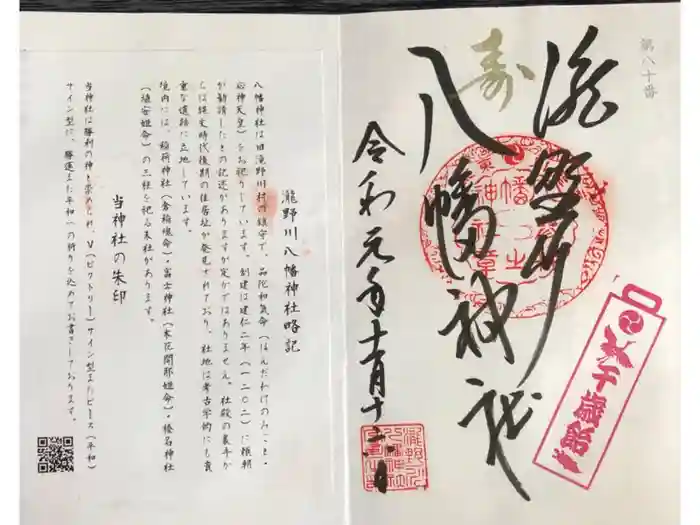 第八十番
寿
滝野川
八幡神社
令和元年十一月十六日
千歳飴
瀧野川八幡神社略記
八幡神社は旧滝野川村の鎮守で、品陀和気命（ほんだわけのみこと・
応神天皇）をお祀りしています。創建は建仁二年（一二〇二）に頼朝
が勧請したとの記述がありますが定かではありません。社殿の裏手か
らは縄文時代後期の住居址が発見されており、社地は考古学的にも貴
重な遺跡に立地しています。
境内には、稲荷神社（倉稲魂命）・冨士神社（木花開耶姫命）・榛名神社
（埴安姫命）の三社を祀る末社があります。
当神社の朱印
当神社は勝利の神と崇められ、V（ビクトリー）サイン型またピース（平和）
サイン型に、勝運また平和への祈りを込めてお書きしております。